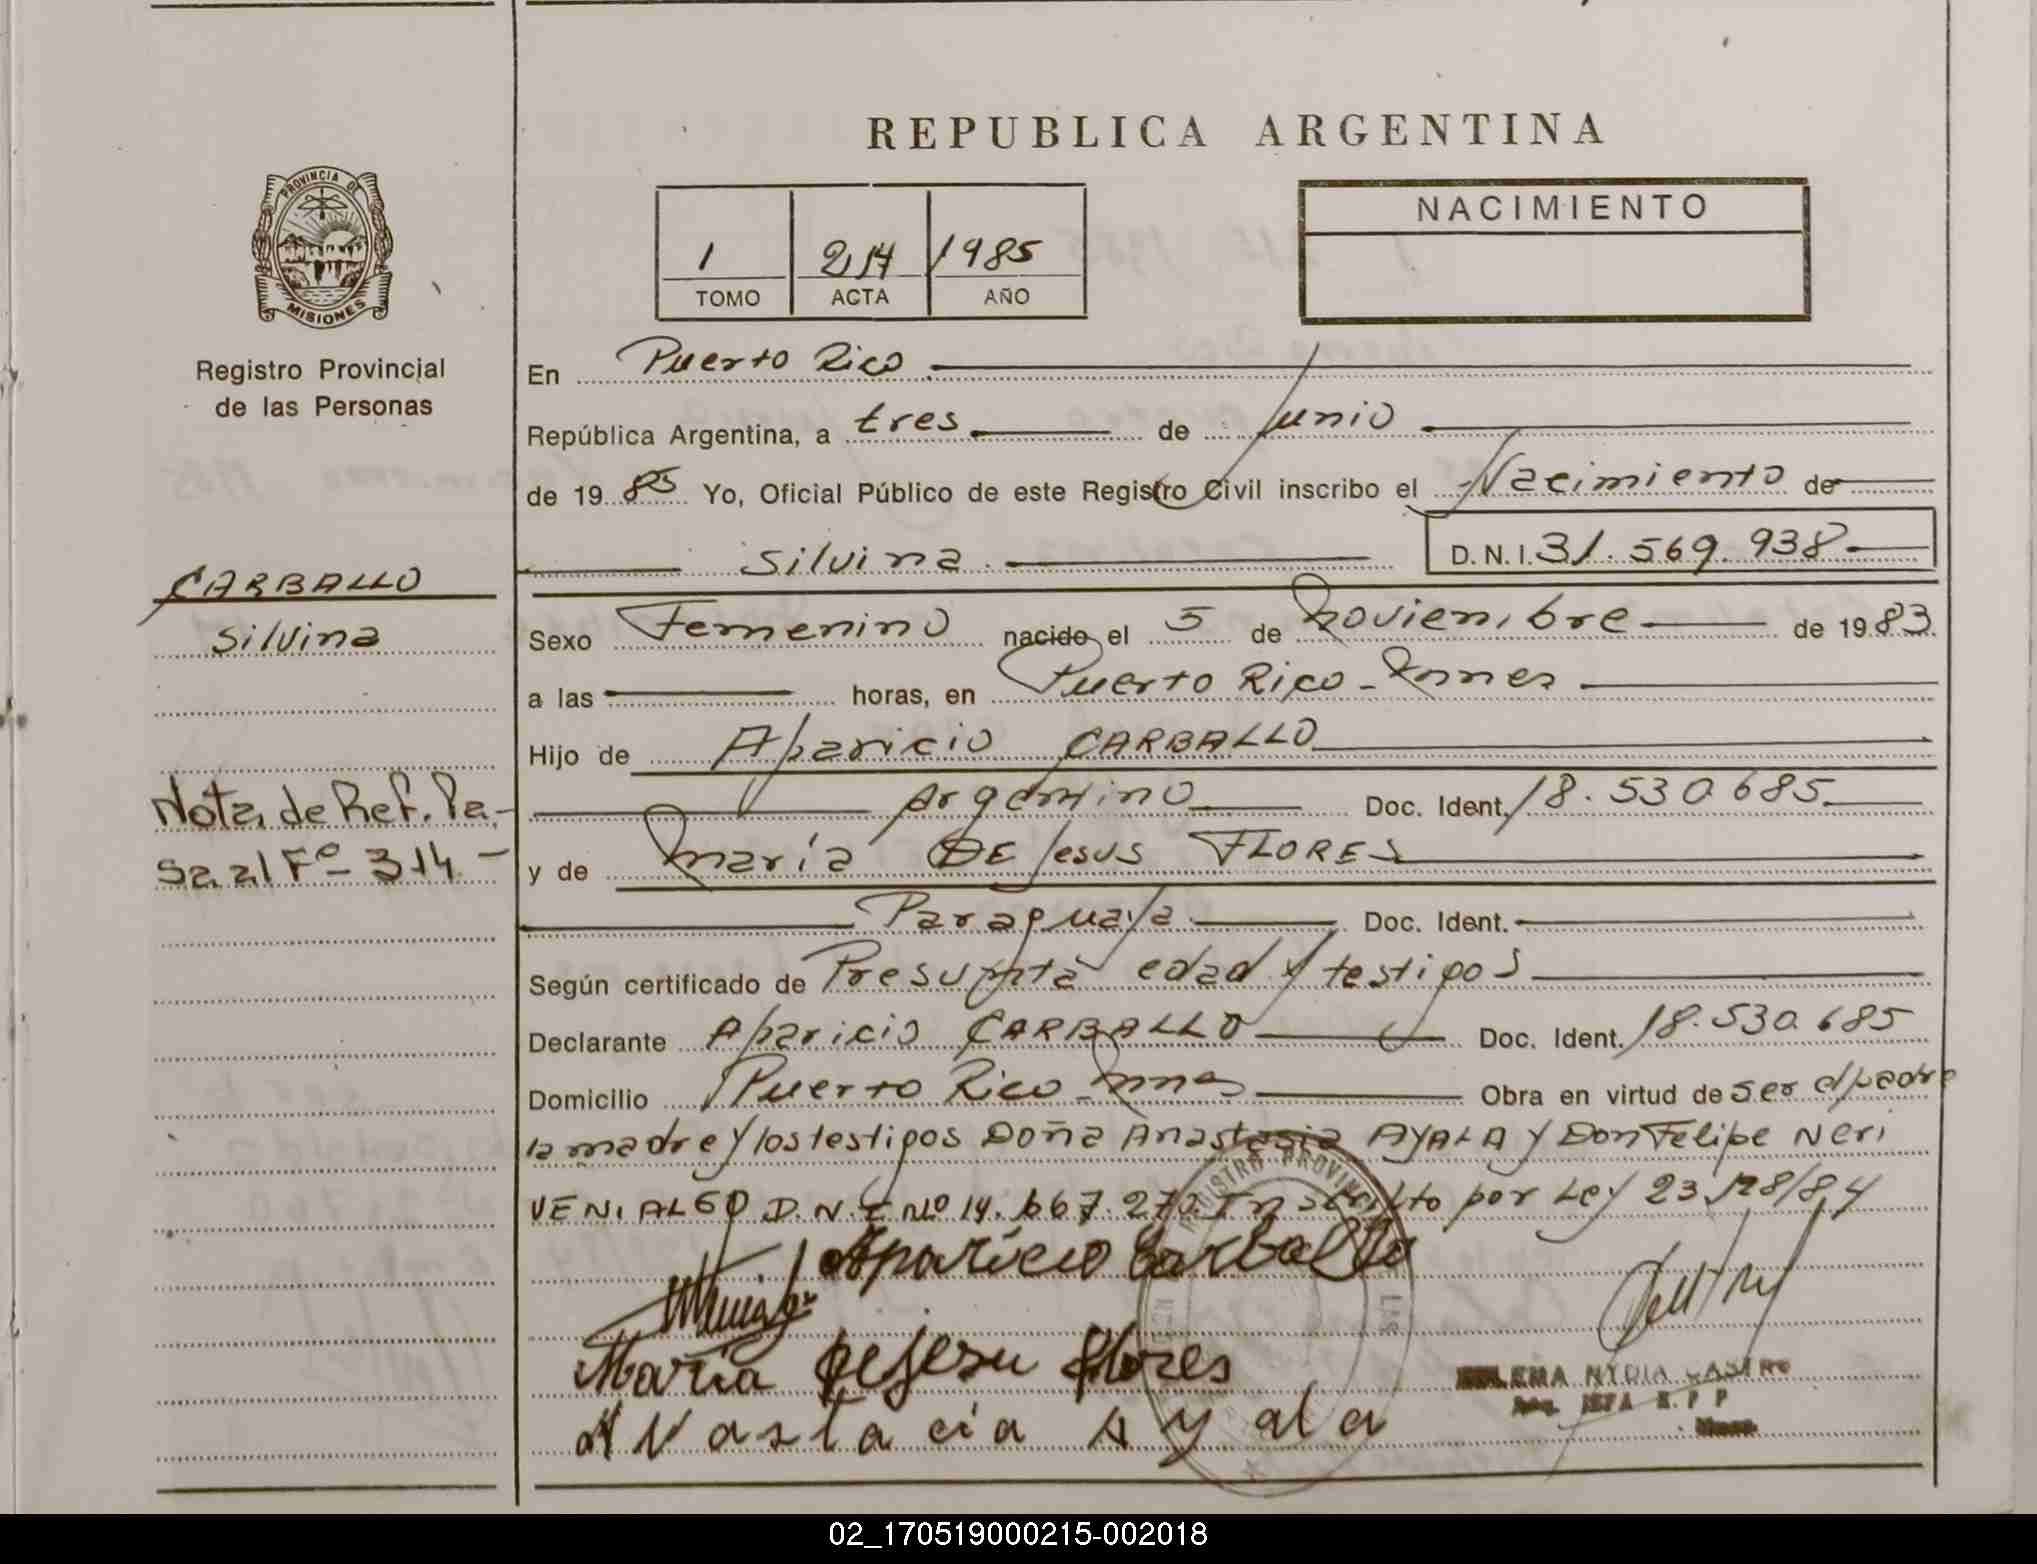 REPUBLICA ARGENTINA
PROVINCIA DE
MISIONES
Registro Provincial
de las Personas
1 214 1985
TOMO ACTA AÑO
NACIMIENTO
En Puerto Rico
República Argentina, a tres de Junio
de 19 85 Yo, Oficial Público de este Registro Civil inscribo el Nacimiento de
Silvina D.N.I. 31.569.938
CARBALLO
Silvina
Sexo Femenino nacido el 5 de Noviembre de 19 83
a las horas, en Puerto Rico - Mnes
Hijo de Aparicio CARBALLO
Argentino Doc. Ident. 18.530.685
Nota de Ref. Pa-
sa al Fº 314 -
y de María DE Jesus FLORES
Paraguaya Doc. Ident.
Según certificado de Presunta edad y testigos
Declarante Aparicio CARBALLO Doc. Ident. 18.530.685
Domicilio Puerto Rico - Mnes Obra en virtud de ser el padre
la madre y los testigos Doña Anastasia AYALA y Don Felipe Neri
VENIALGO D.N.I Nº 14.667.270. Inscripto por Ley 23.128/84
Aparicio Carballo
Maria de Jesu Flores
Anastacia Ayala
NYDIA CASTRO
JEFA R.P.P
02_170519000215-002018